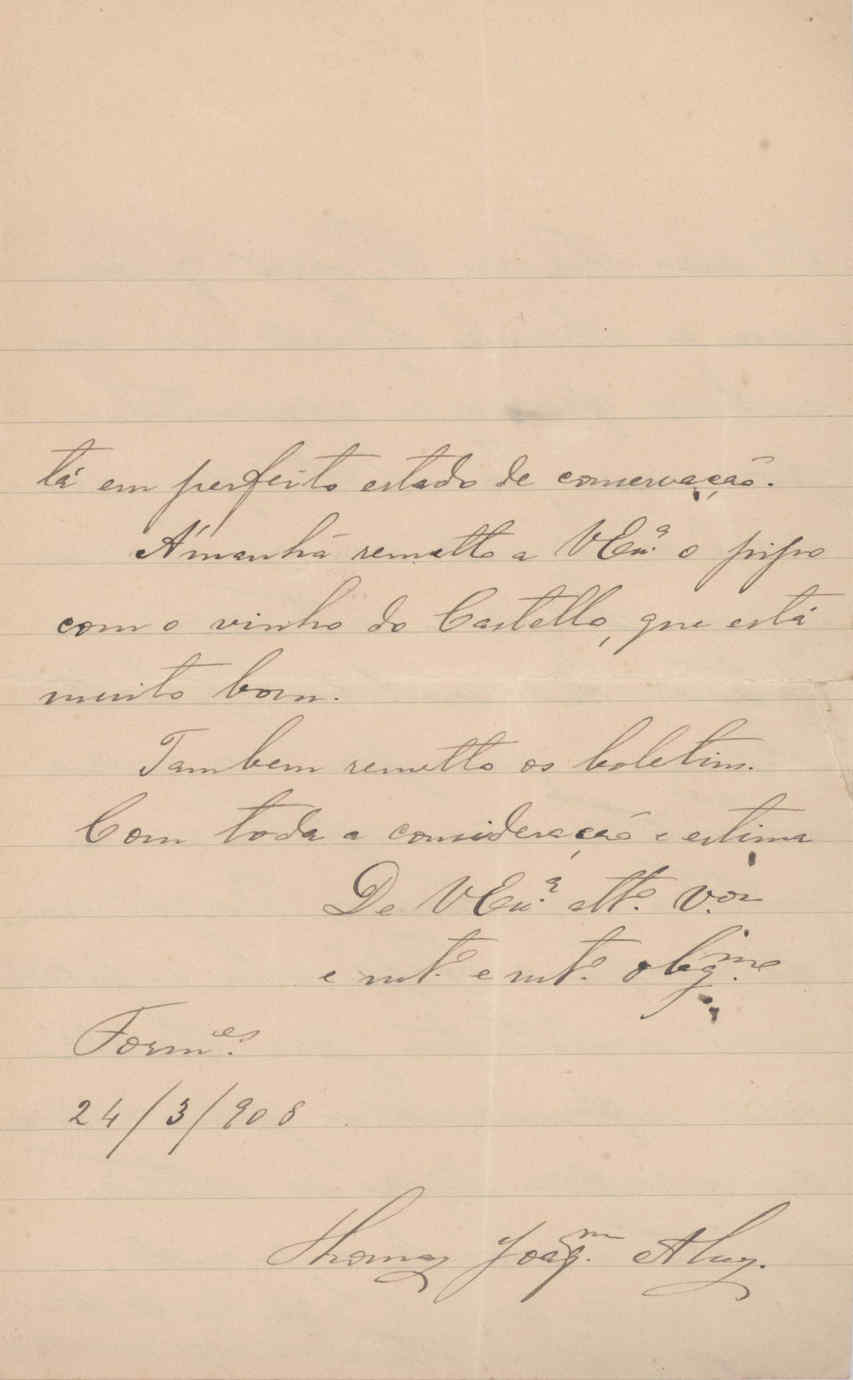 tá em perfeito estado de conservação.
Ámanhã remetto a V Exª. o pipo
com o vinho do Castello, que está
muito bom.
Tambem remetto os boletins.
Com toda a consideração e estima
De V Exª. attº. V.ºr
e mtº. e mtº. obgmº.
Formes.
24/3/908
Thomaz Joaqm. Alvz.